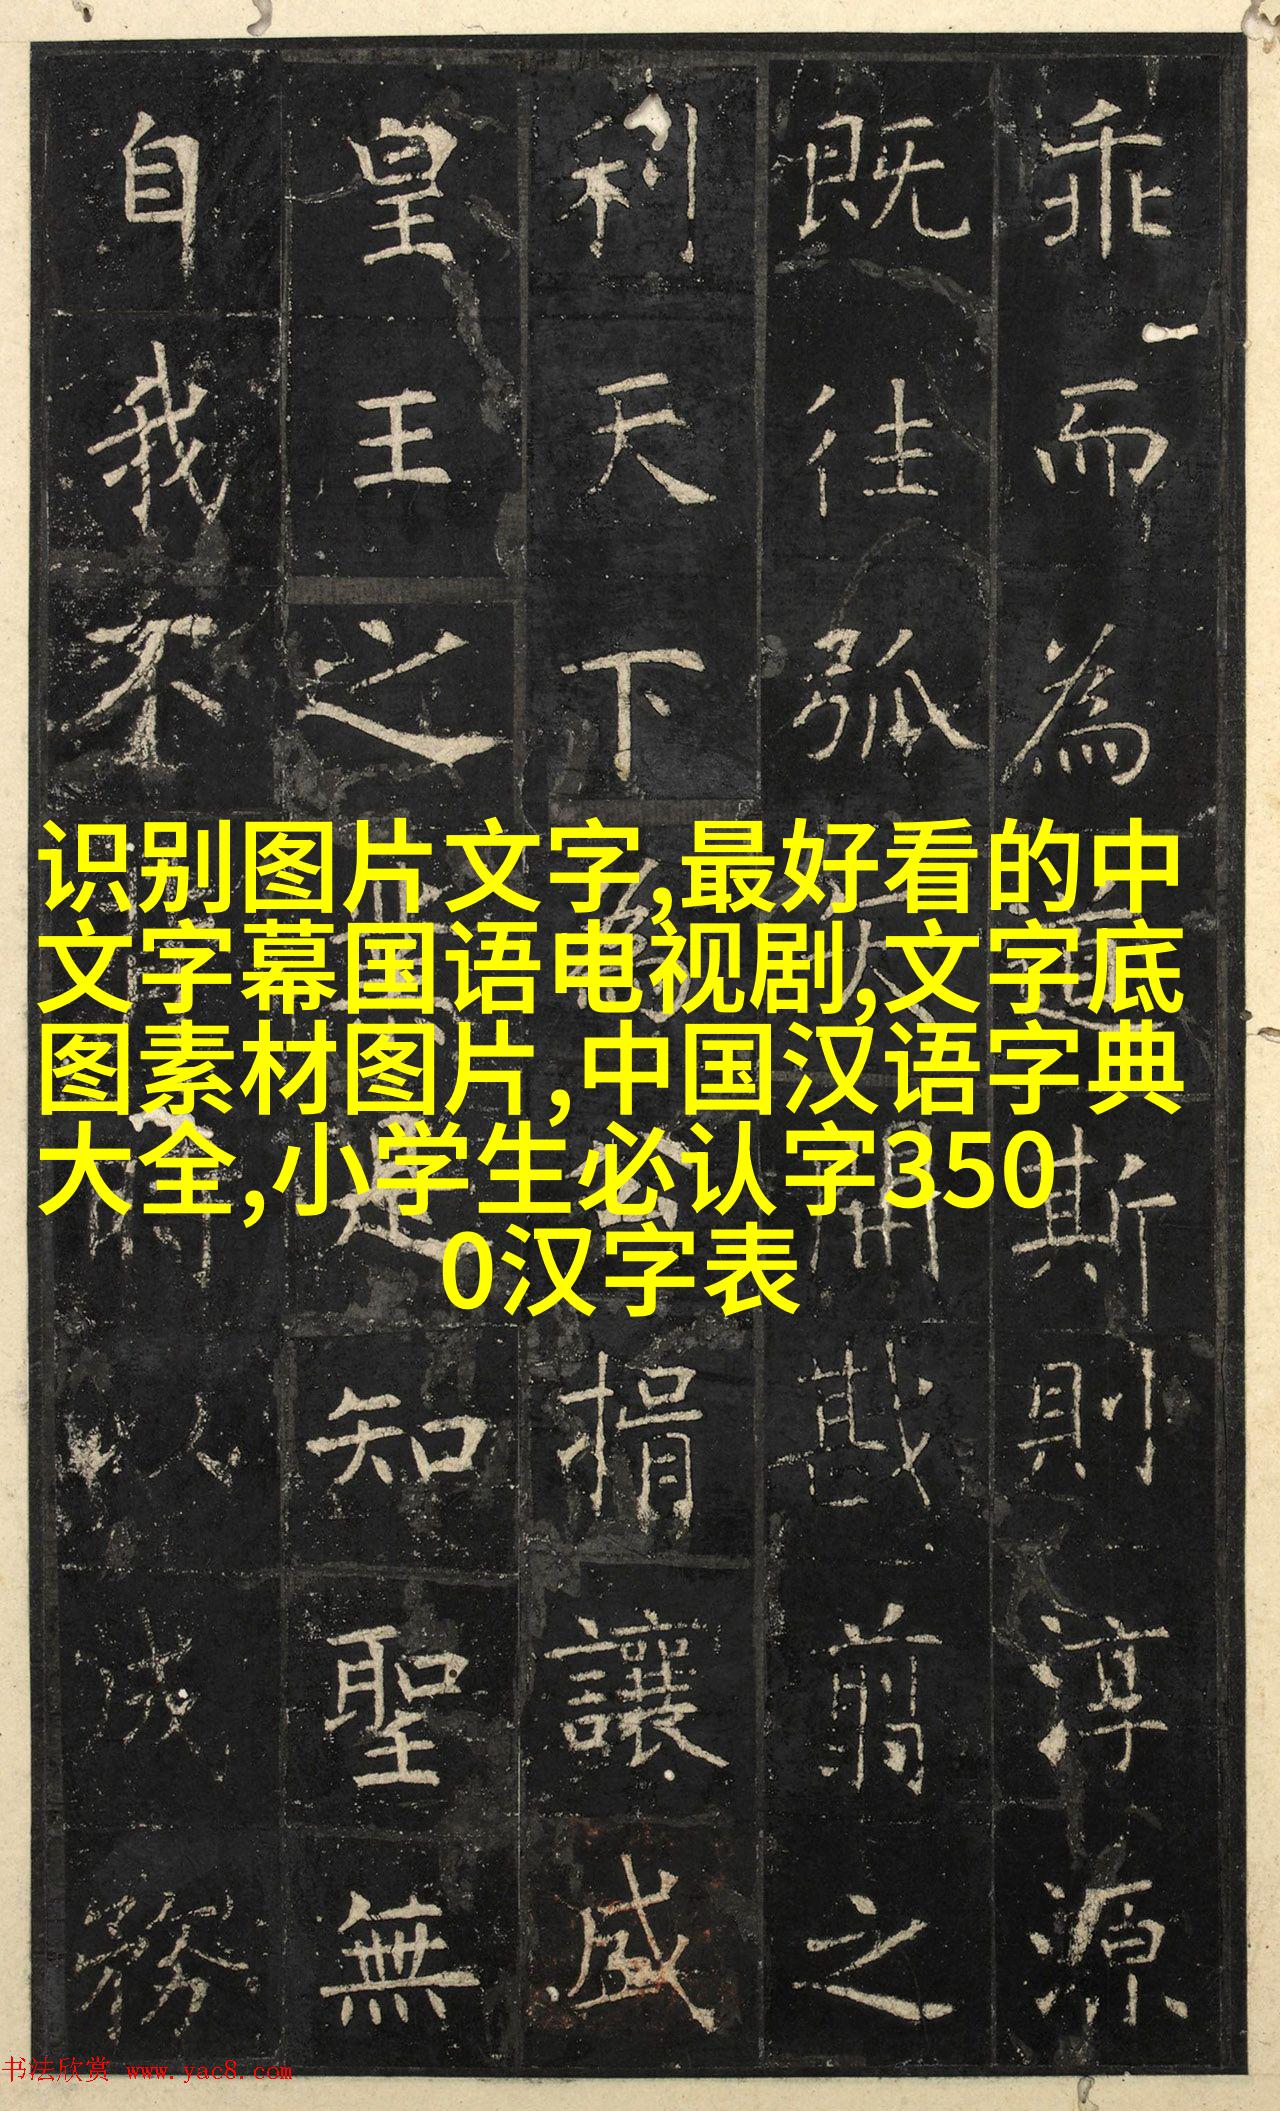 乖而為道斯則淳源
既往弧矢開戡翦之
利天下為公揖讓盛
皇王之基是知聖無
自我不時以成務
识别图片文字,最好看的中
文字幕国语电视剧,文字底
图素材图片,中国汉语字典
大全,小学生必认字350
0汉字表
书法欣赏 www.yac8.com